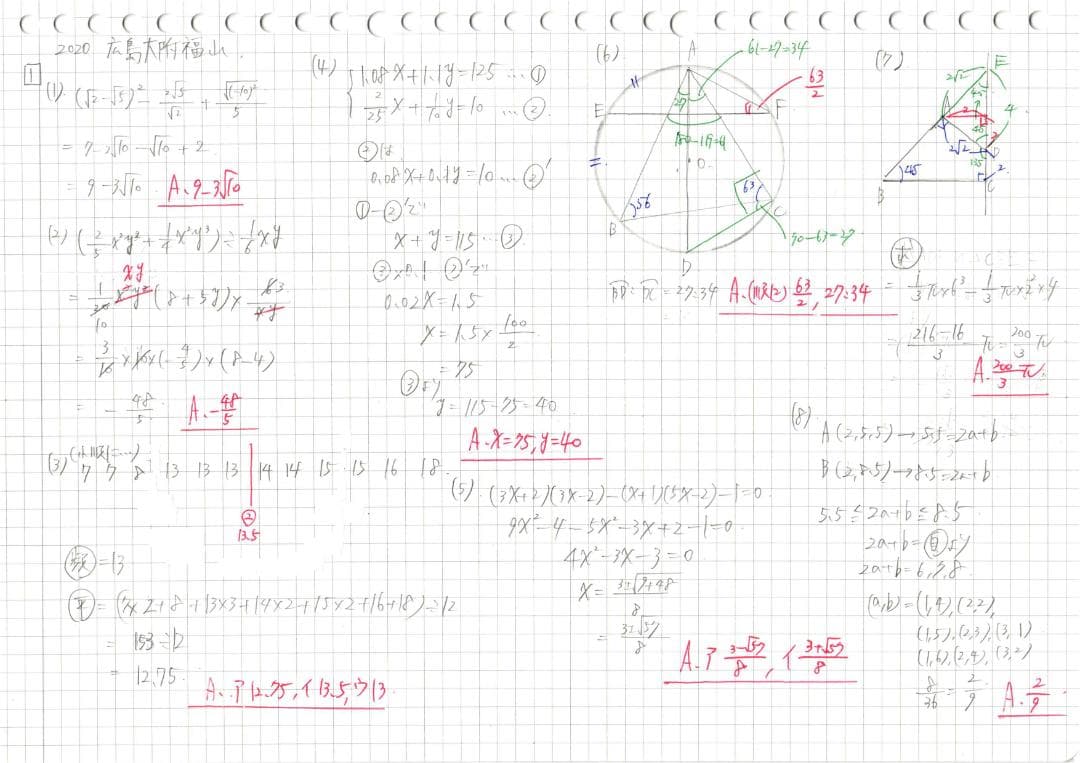 2020 広島大附福山
1
(1) (√2-√5)² - 2√5/√2 + √(1-10)²/5
= 7-2√10-√10+2
= 9-3√10 A. 9-3√10
(2) (2/5 x²y² + 1/4 x²y³) ÷ 1/6 xy
xy
= 1/20 x²y² (8+5y) × 6/xy
10 3
= 3/10 × 10 × (-4/5) × (8-4)
= -48/5 A. -48/5
(3)
7 7 8 13 13 13 | 14 14 15 15 16 18
②
13.5
=13
平 = (7×2+8+13×3+14×2+15×2+16+18)÷12
= 153÷12
= 12.75
A. ア12.75, イ13.5, ウ13
(4)
1.08x+1.1y=125 … ①
2/25 x + 1/10 y = 10 … ②
②は
0.08x+0.1y=10 … ②'
①-②'で
x+y=115 … ③
③×0.1 ②'で
0.02x=1.5
x=1.5×100/2
=75
③より
y=115-75=40
A. x=75, y=40
(5) (3x+2)(3x-2)-(x+1)(5x-2)-1=0
9x²-4-5x²-3x+2-1=0
4x²-3x-3=0
x= 3±√9+48/8
= 3±√57/8
A. ア 3-√57/8, イ 3+√57/8
(6)
A
61-27=34
63/2
27
E
F
O
B
56
63
C
90-63=27
D
= 27:34 A. (順に) 63/2, 27:34
(7)
E
2√2
45
4
A
2
2√2
D
135
2
B
45
C
求
= 1/3 π×6³ - 1/3 π×2²×4
= 216-16/3 π = 200/3 π
A. 200/3 π
(8)
A(2,5.5)→5.5=2a+b
B(2,8.5)→8.5=2a+b
5.5≦2a+b≦8.5
2a+b=自より
2a+b=6,7,8
(a,b)=(1,4),(2,2),
(1,5),(2,3),(3,1)
(1,6),(2,4),(3,2)
8/36 = 2/9 A. 2/9